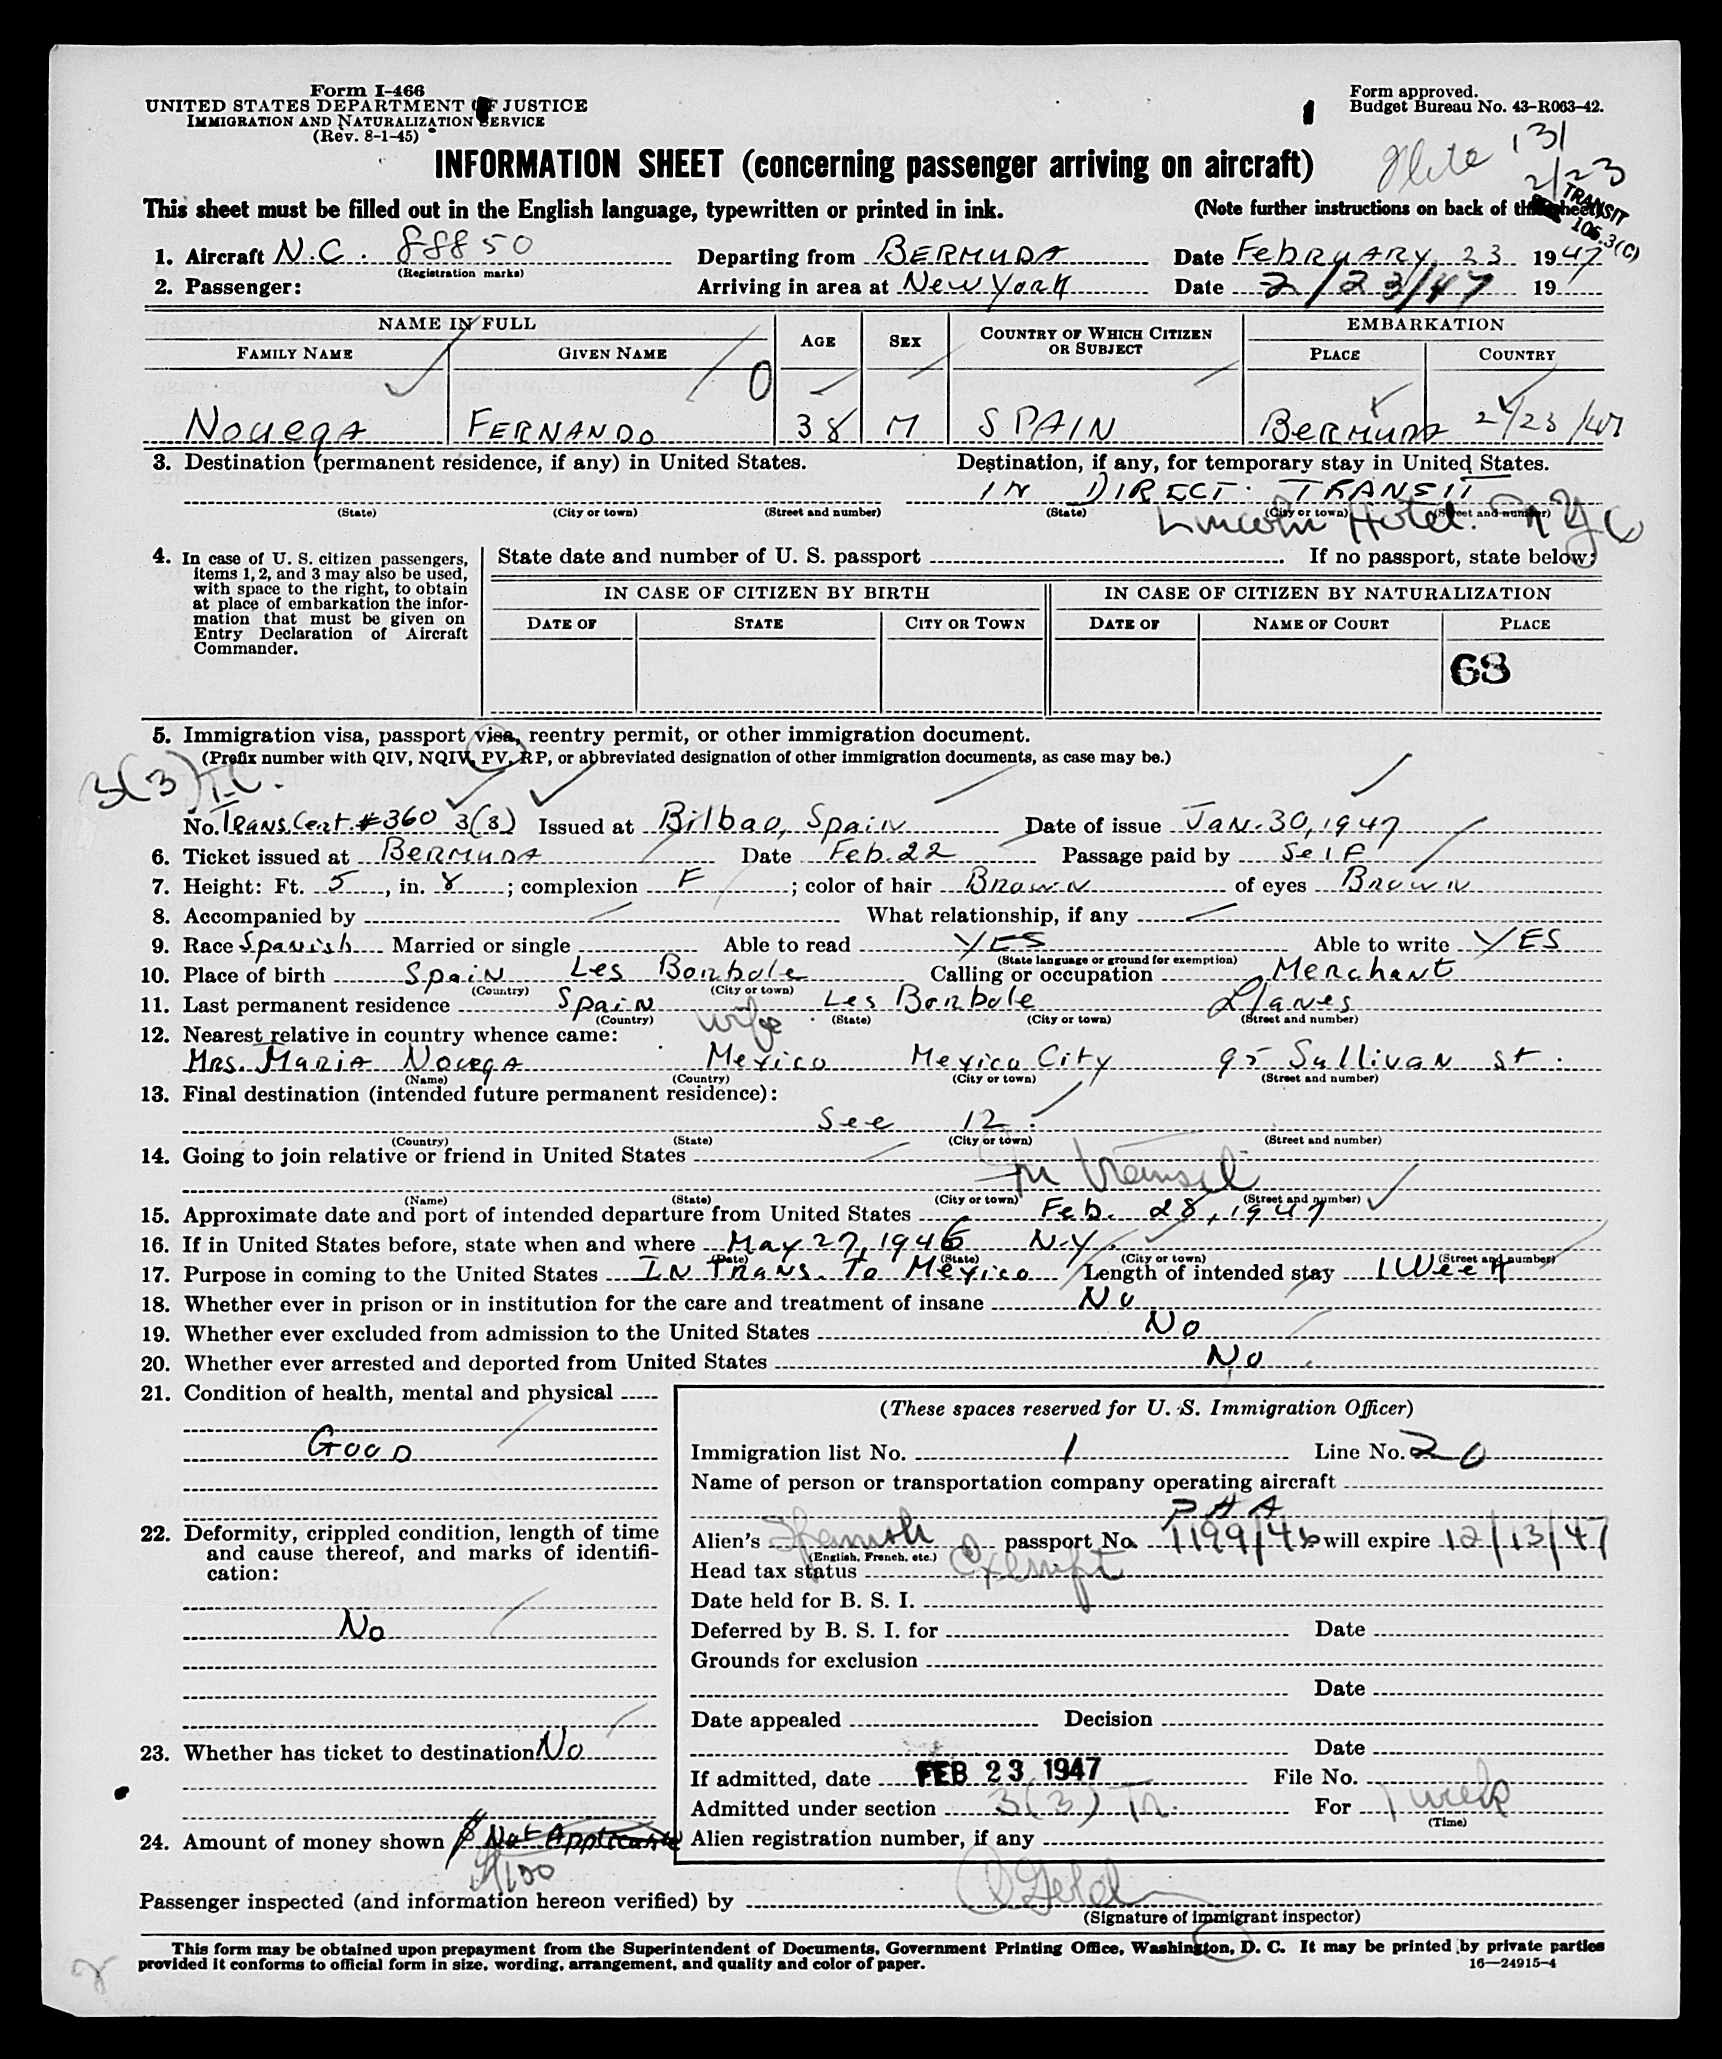 Form I-466
UNITED STATES DEPARTMENT OF JUSTICE
IMMIGRATION AND NATURALIZATION SERVICE
(Rev. 8-1-45)
Form approved.
Budget Bureau No. 43-R063-42.
INFORMATION SHEET (concerning passenger arriving on aircraft)
131
2/23
TRANSIT
This sheet must be filled out in the English language, typewritten or printed in ink. (Note further instructions on back of this sheet)
106.3(C)
1. Aircraft N.C. 88850 Departing from BERMUDA Date February 23 1947
(Registration marks)
2. Passenger: Arriving in area at New York Date 2/23/47 19
NAME IN FULL AGE SEX COUNTRY OF WHICH CITIZEN OR SUBJECT EMBARKATION
FAMILY NAME GIVEN NAME PLACE COUNTRY
Nouega FERNANDO 38 M SPAIN BERMUDA 2/23/47
3. Destination (permanent residence, if any) in United States. Destination, if any, for temporary stay in United States.
IN DIRECT TRANSIT
(State) (City or town) (Street and number) (State) (City or town) (Street and number)
Lincoln Hotel. N Y C
4. In case of U. S. citizen passengers, items 1, 2, and 3 may also be used, with space to the right, to obtain at place of embarkation the information that must be given on Entry Declaration of Aircraft Commander.
State date and number of U. S. passport If no passport, state below:
IN CASE OF CITIZEN BY BIRTH IN CASE OF CITIZEN BY NATURALIZATION
DATE OF STATE CITY OR TOWN DATE OF NAME OF COURT PLACE
68
5. Immigration visa, passport visa, reentry permit, or other immigration document.
(Prefix number with QIV, NQIV, PV, RP, or abbreviated designation of other immigration documents, as case may be.)
3(3) T.C.
No. Trans. Cert. #360 3(3) Issued at Bilbao, Spain Date of issue Jan. 30, 1947
6. Ticket issued at BERMUDA Date Feb. 22 Passage paid by Self
7. Height: Ft. 5, in. 8; complexion F; color of hair Brown of eyes Brown
8. Accompanied by What relationship, if any
9. Race Spanish Married or single Able to read YES Able to write YES
(State language or ground for exemption)
10. Place of birth Spain Les Borbole Calling or occupation Merchant
(Country) (City or town)
11. Last permanent residence Spain Les Borbole Llanes
(Country) (State) (City or town) (Street and number)
12. Nearest relative in country whence came: wife
Mrs. Maria Nouega Mexico Mexico City 95 Sullivan St.
(Name) (Country) (City or town) (Street and number)
13. Final destination (intended future permanent residence):
See 12.
(Country) (State) (City or town) (Street and number)
14. Going to join relative or friend in United States
In transit
(Name) (State) (City or town) (Street and number)
15. Approximate date and port of intended departure from United States Feb. 28, 1947
16. If in United States before, state when and where May 27, 1946 N.Y.
(Date) (State) (City or town) (Street and number)
17. Purpose in coming to the United States IN TRANS. To Mexico Length of intended stay 1 Week
18. Whether ever in prison or in institution for the care and treatment of insane No
19. Whether ever excluded from admission to the United States No
20. Whether ever arrested and deported from United States No
21. Condition of health, mental and physical
Good
22. Deformity, crippled condition, length of time and cause thereof, and marks of identification:
No
23. Whether has ticket to destination No
24. Amount of money shown $ Not Applicable
$100
(These spaces reserved for U. S. Immigration Officer)
Immigration list No. 1 Line No. 20
Name of person or transportation company operating aircraft
P A A
Alien's Spanish passport No. 1199/46 will expire 12/13/47
(English, French, etc.)
Head tax status Exempt
Date held for B. S. I.
Deferred by B. S. I. for Date
Grounds for exclusion
Date
Date appealed Decision
Date
If admitted, date FEB 23 1947 File No.
Admitted under section 3(3) Tr. For 1 week
(Time)
Alien registration number, if any
Passenger inspected (and information hereon verified) by
(Signature of immigrant inspector)
This form may be obtained upon prepayment from the Superintendent of Documents, Government Printing Office, Washington, D. C. It may be printed by private parties
provided it conforms to official form in size, wording, arrangement, and quality and color of paper. 16—24915-4